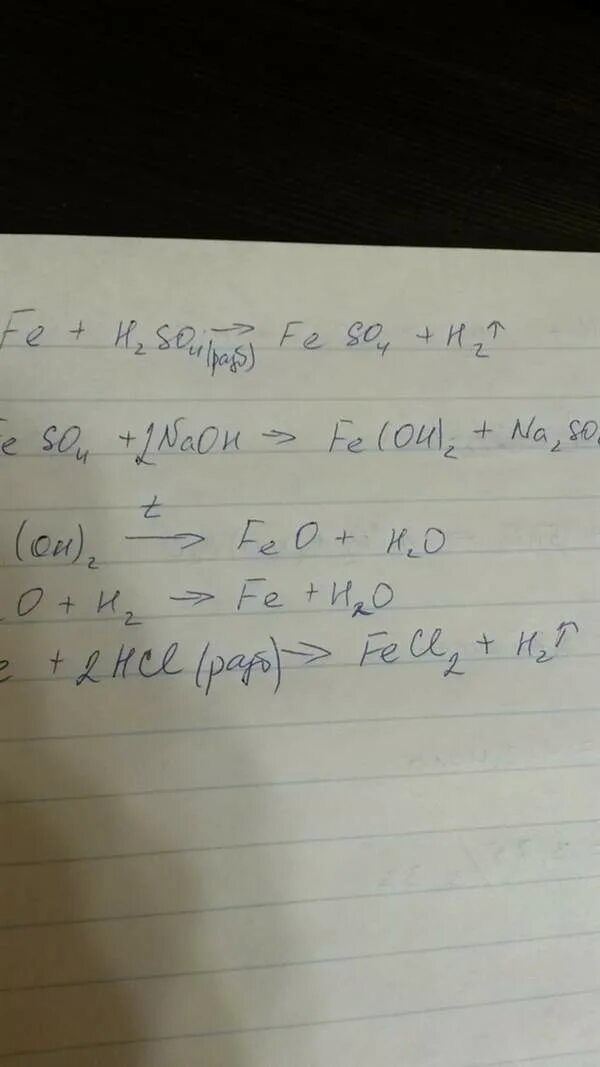 Fe + H₂SO₄(разб) → FeSO₄ + H₂↑
Fe SO₄ + 2NaOH → Fe(OH)₂ + Na₂SO₄
(OH)₂ t→ FeO + H₂O
O + H₂ → Fe + H₂O
e + 2HCl (разб) → FeCl₂ + H₂↑